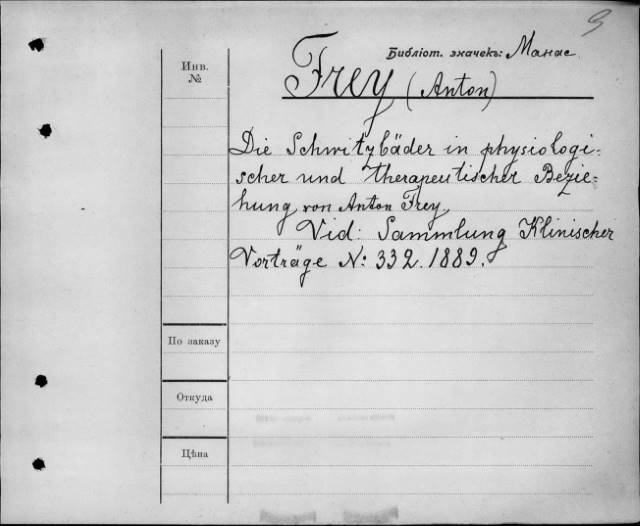 9
Библіот. значекъ: Манас.
Инв.
№
Frey (Anton)
Die Schwitzbäder in physiologi-
scher und therapeutischer Bezie-
hung von Anton Frey.
Vid: Sammlung Klinischer
Vorträge N: 332. 1889.
По заказу
Откуда
Цѣна